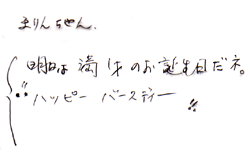 まりんちゃん.
明日は満1才のお誕生日だネ。
ハッピー バースディー!!